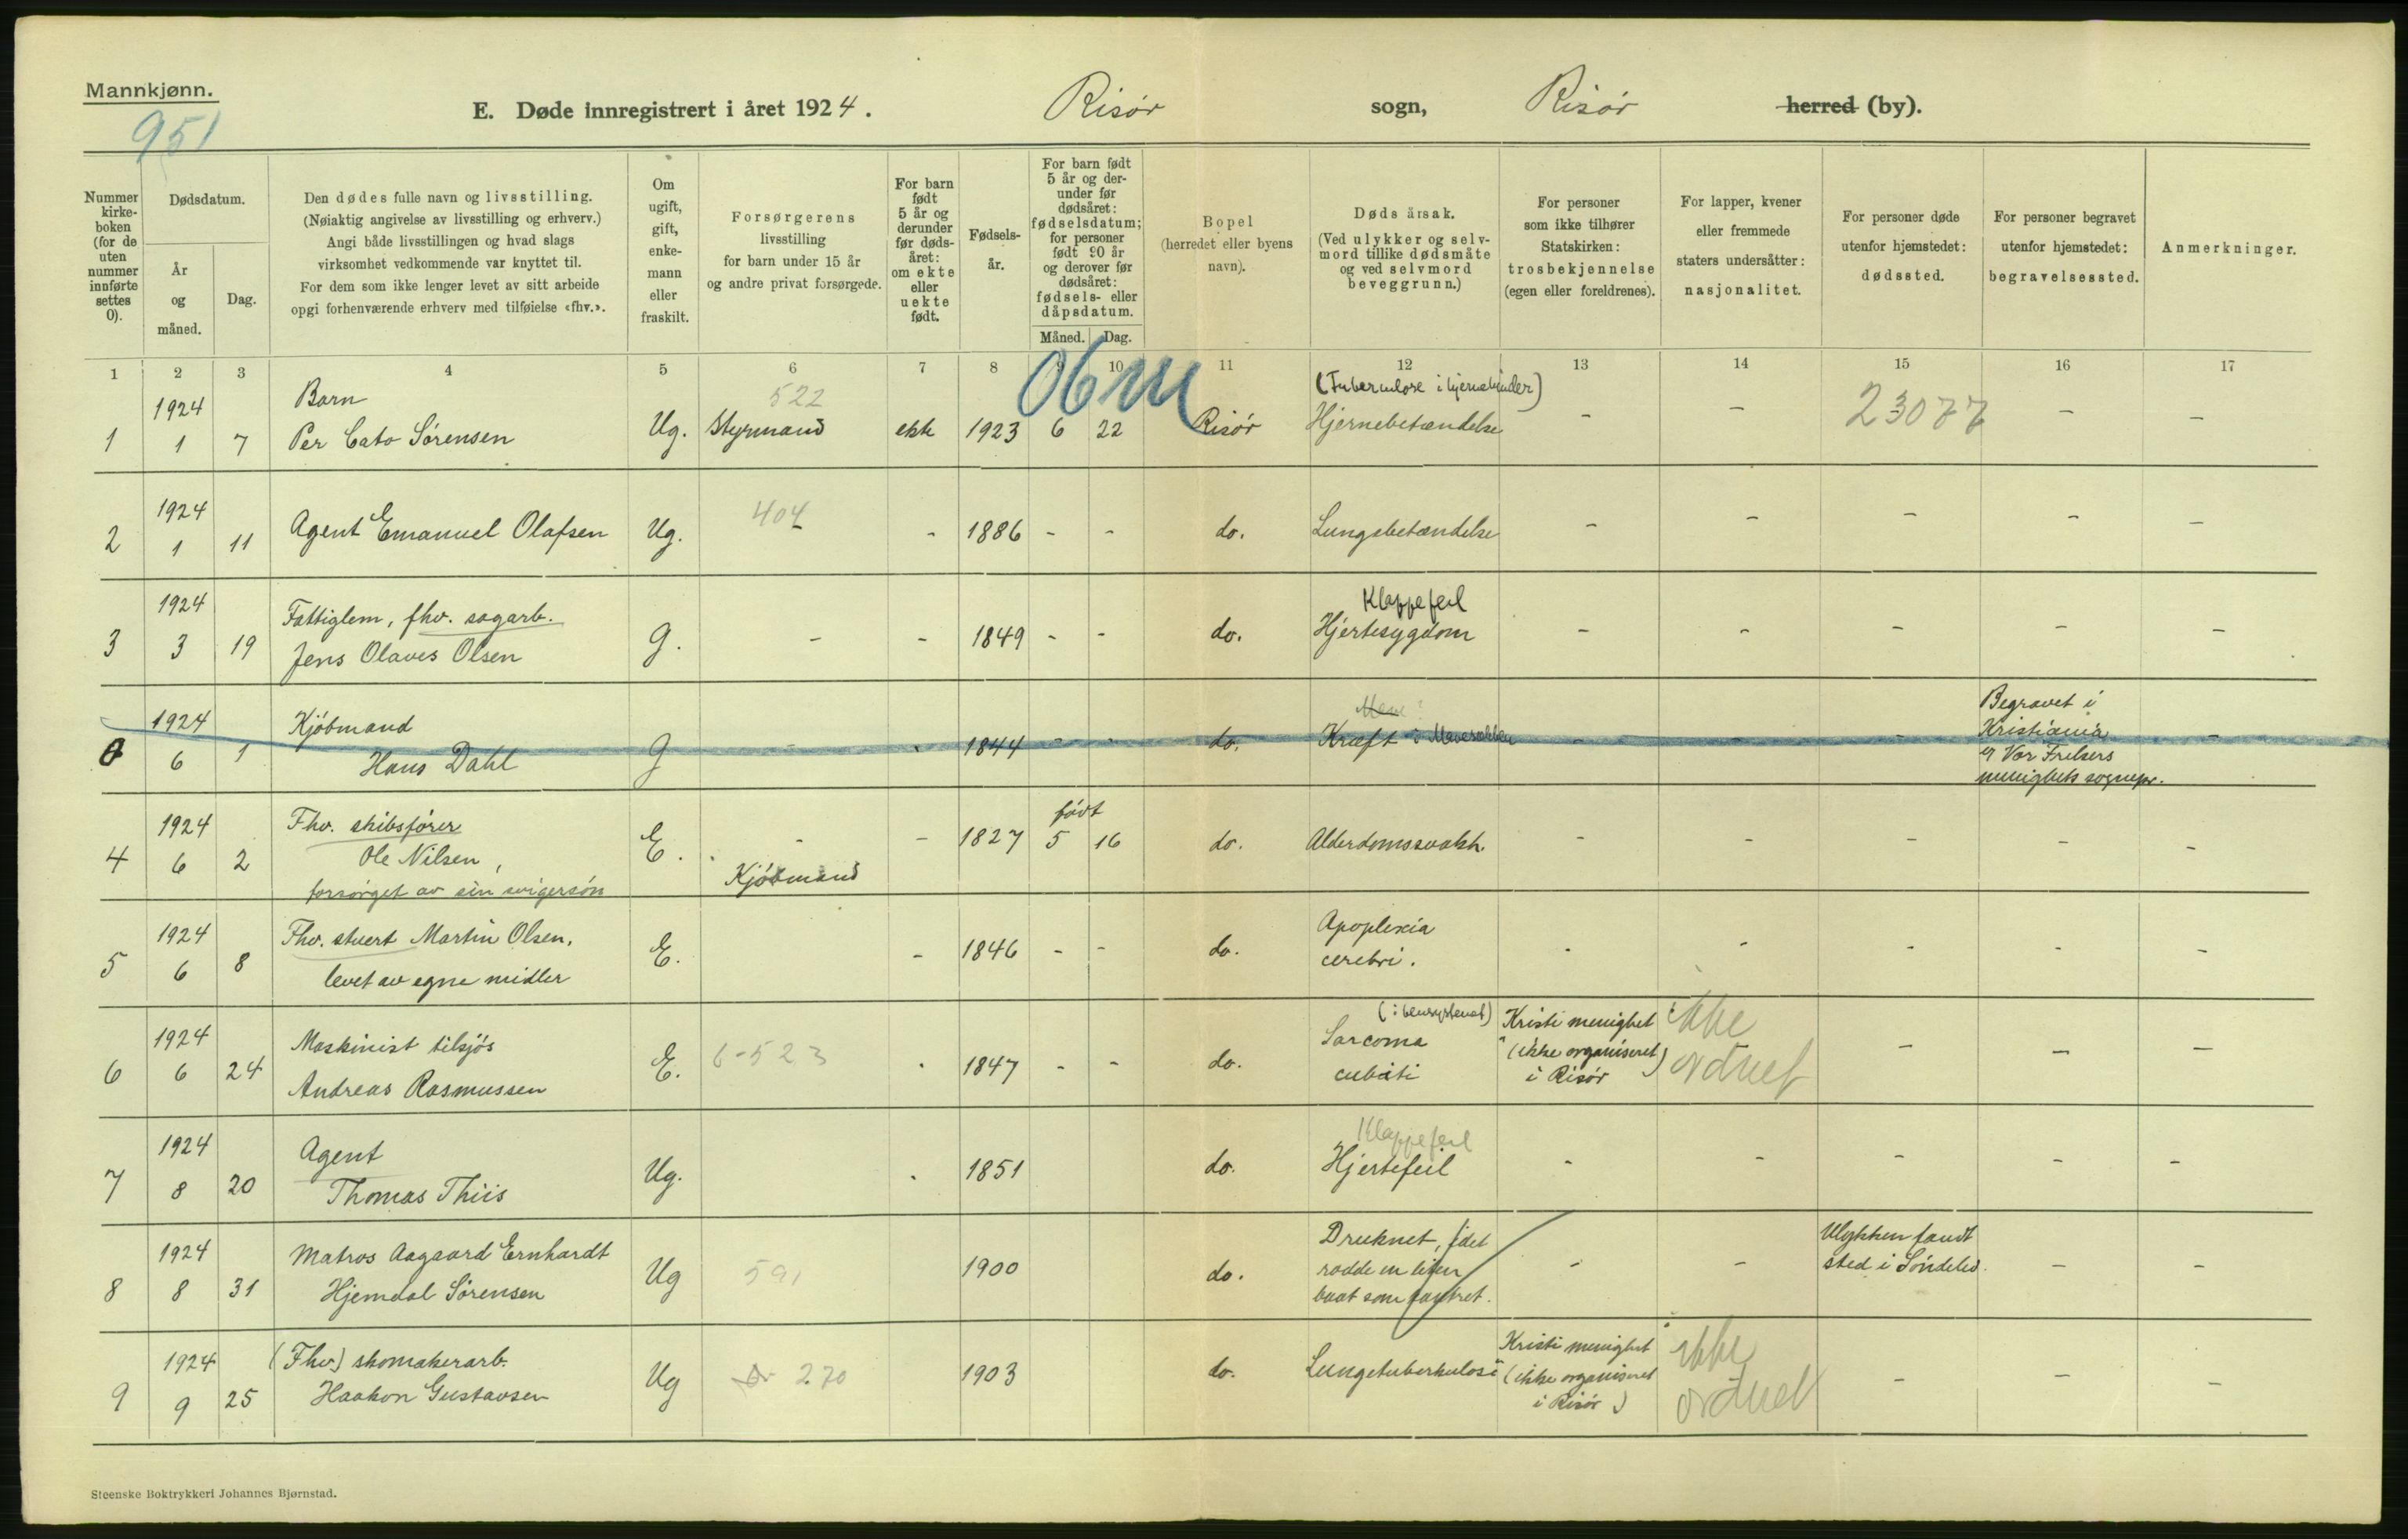 Mannkjønn.
951
E. Døde innregistrert i året 1924. Risør sogn, Risør herred (by).
Nummer kirke-boken (for de uten nummer innførte settes 0).
Dødsdatum.
År og måned.
Dag.
Den dødes fulle navn og livsstilling.
(Nøiaktig angivelse av livsstilling og erhverv.)
Angi både livsstillingen og hvad slags
virksomhet vedkommende var knyttet til.
For dem som ikke lenger levet av sitt arbeide
opgi forhenværende erhverv med tilføielse «fhv.».
Om ugift, gift, enke-mann eller fraskilt.
Forsørgerens
livsstilling
for barn under 15 år
og andre privat forsørgede.
For barn født 5 år og derunder før døds-året: om ekte eller uekte født.
Fødsels-år.
For barn født 5 år og der-under før dødsåret: fødselsdatum; for personer født 90 år og derover før dødsåret: fødsels- eller dåpsdatum.
Måned. Dag.
Bopel
(herredet eller byens
navn).
Dødsårsak.
(Ved ulykker og selv-
mord tillike dødsmåte
og ved selvmord
beveggrunn.)
For personer
som ikke tilhører
Statskirken:
trosbekjennelse
(egen eller foreldrenes).
For lapper, kvener
eller fremmede
staters undersåtter:
nasjonalitet.
For personer døde
utenfor hjemstedet:
dødssted.
For personer begravet
utenfor hjemstedet:
begravelsessted.
Anmerkninger.
1 2 3 4 5 6 7 8 9 10 11 12 13 14 15 16 17
1924 Barn 522 (Tuberculose i hjernehinder)
1 1 7 Per Cato Sørensen Ug. Styrmand ekte 1923 6 22 Risør Hjernebetændelse - - 23077 - -
1924 404
2 1 11 Agent Emanuel Olafsen Ug. - 1886 - - do. Lungebetændelse - - - - -
1924 Fattiglem, fhv. sagarb. Klappefeil
3 3 19 Jens Olaves Olsen g. - - 1849 - - do. Hjertesygdom - - - - -
1924 Kjøbmand Begravet i
0 6 1 Hans Dahl g - - 1844 - - do. Kræft i Mavesækken - - - Kristiania -
Vor Frelsers
menighets sognepr.
1924 Fhv. skibsfører født
4 6 2 Ole Nilsen, E. - - 1827 5 16 do. Alderdomssvakh. - - - - -
forsørget av sin svigersøn Kjøbmand
1924 Fhv. stuert Martin Olsen, Apoplexia
5 6 8 levet av egne midler E. - 1846 - - do. cerebri. - - - - -
1924 Maskinist tilsjøs (i bensystemet) Kristi menighet ikke
6 6 24 Andreas Rasmussen E. 6-523 - 1847 - - do. Sarcoma cubiti (ikke organiseret i Risør) ordnet - - -
1924 Agent Klappefeil
7 8 20 Thomas Thiis Ug. - 1851 do. Hjertefeil - - - - -
1924 Matros Aagaard Ernhardt Druknet, idet Ulykken fandt
8 8 31 Hjemdal Sørensen Ug 591 1900 do. rodde en liten - - sted i Søndeled. - -
baat som kantret.
1924 (Fhv) skomakerarb. Kristi menighet ikke
9 9 25 Haakon Gustavsen Ug 270 1903 do. Lungetuberkulose (ikke organiseret i Risør) ordnet - - -
Steenske Boktrykkeri Johannes Bjørnstad.